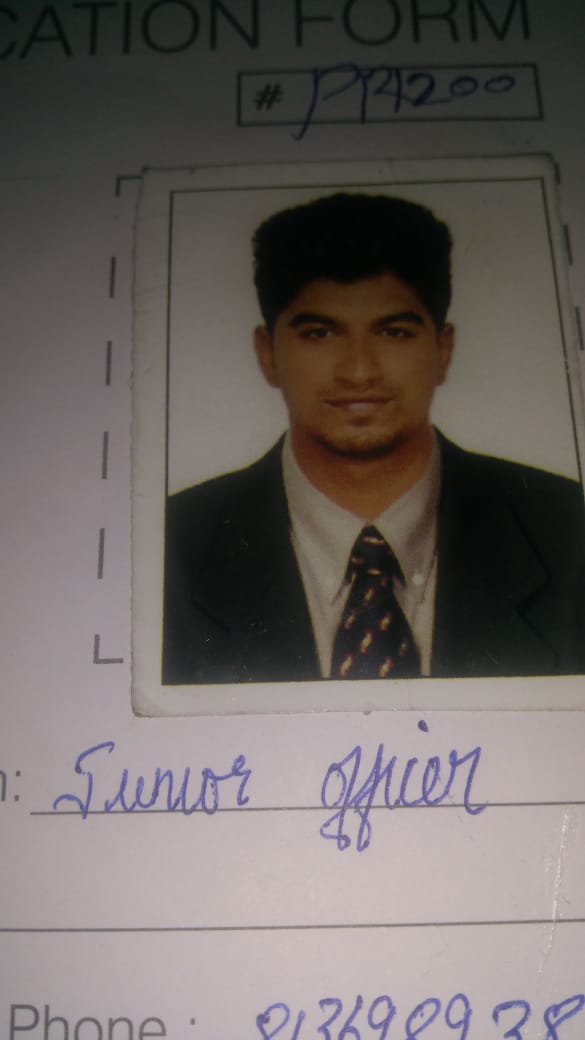 CATION FORM
# PP4200
n: Junior officer
Phone : 813698938